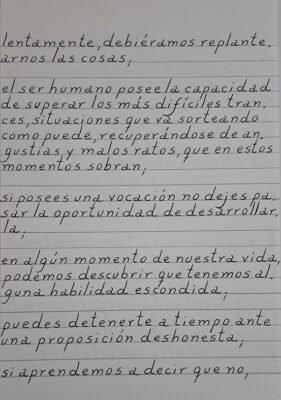 lentamente, debiéramos replante.
arnos las cosas;
el ser humano posee la capacidad
de superar los más difíciles tran.
ces, situaciones que va sorteando
como puede, recuperándose de an.
gustias y malos ratos, que en estos
momentos sobran;
si posees una vocación no dejes pa.
sar la oportunidad de desarrollar.
la;
en algún momento de nuestra vida,
podemos descubrir que tenemos al.
guna habilidad escondida;
puedes detenerte a tiempo ante
una proposición deshonesta;
si aprendemos a decir que no,